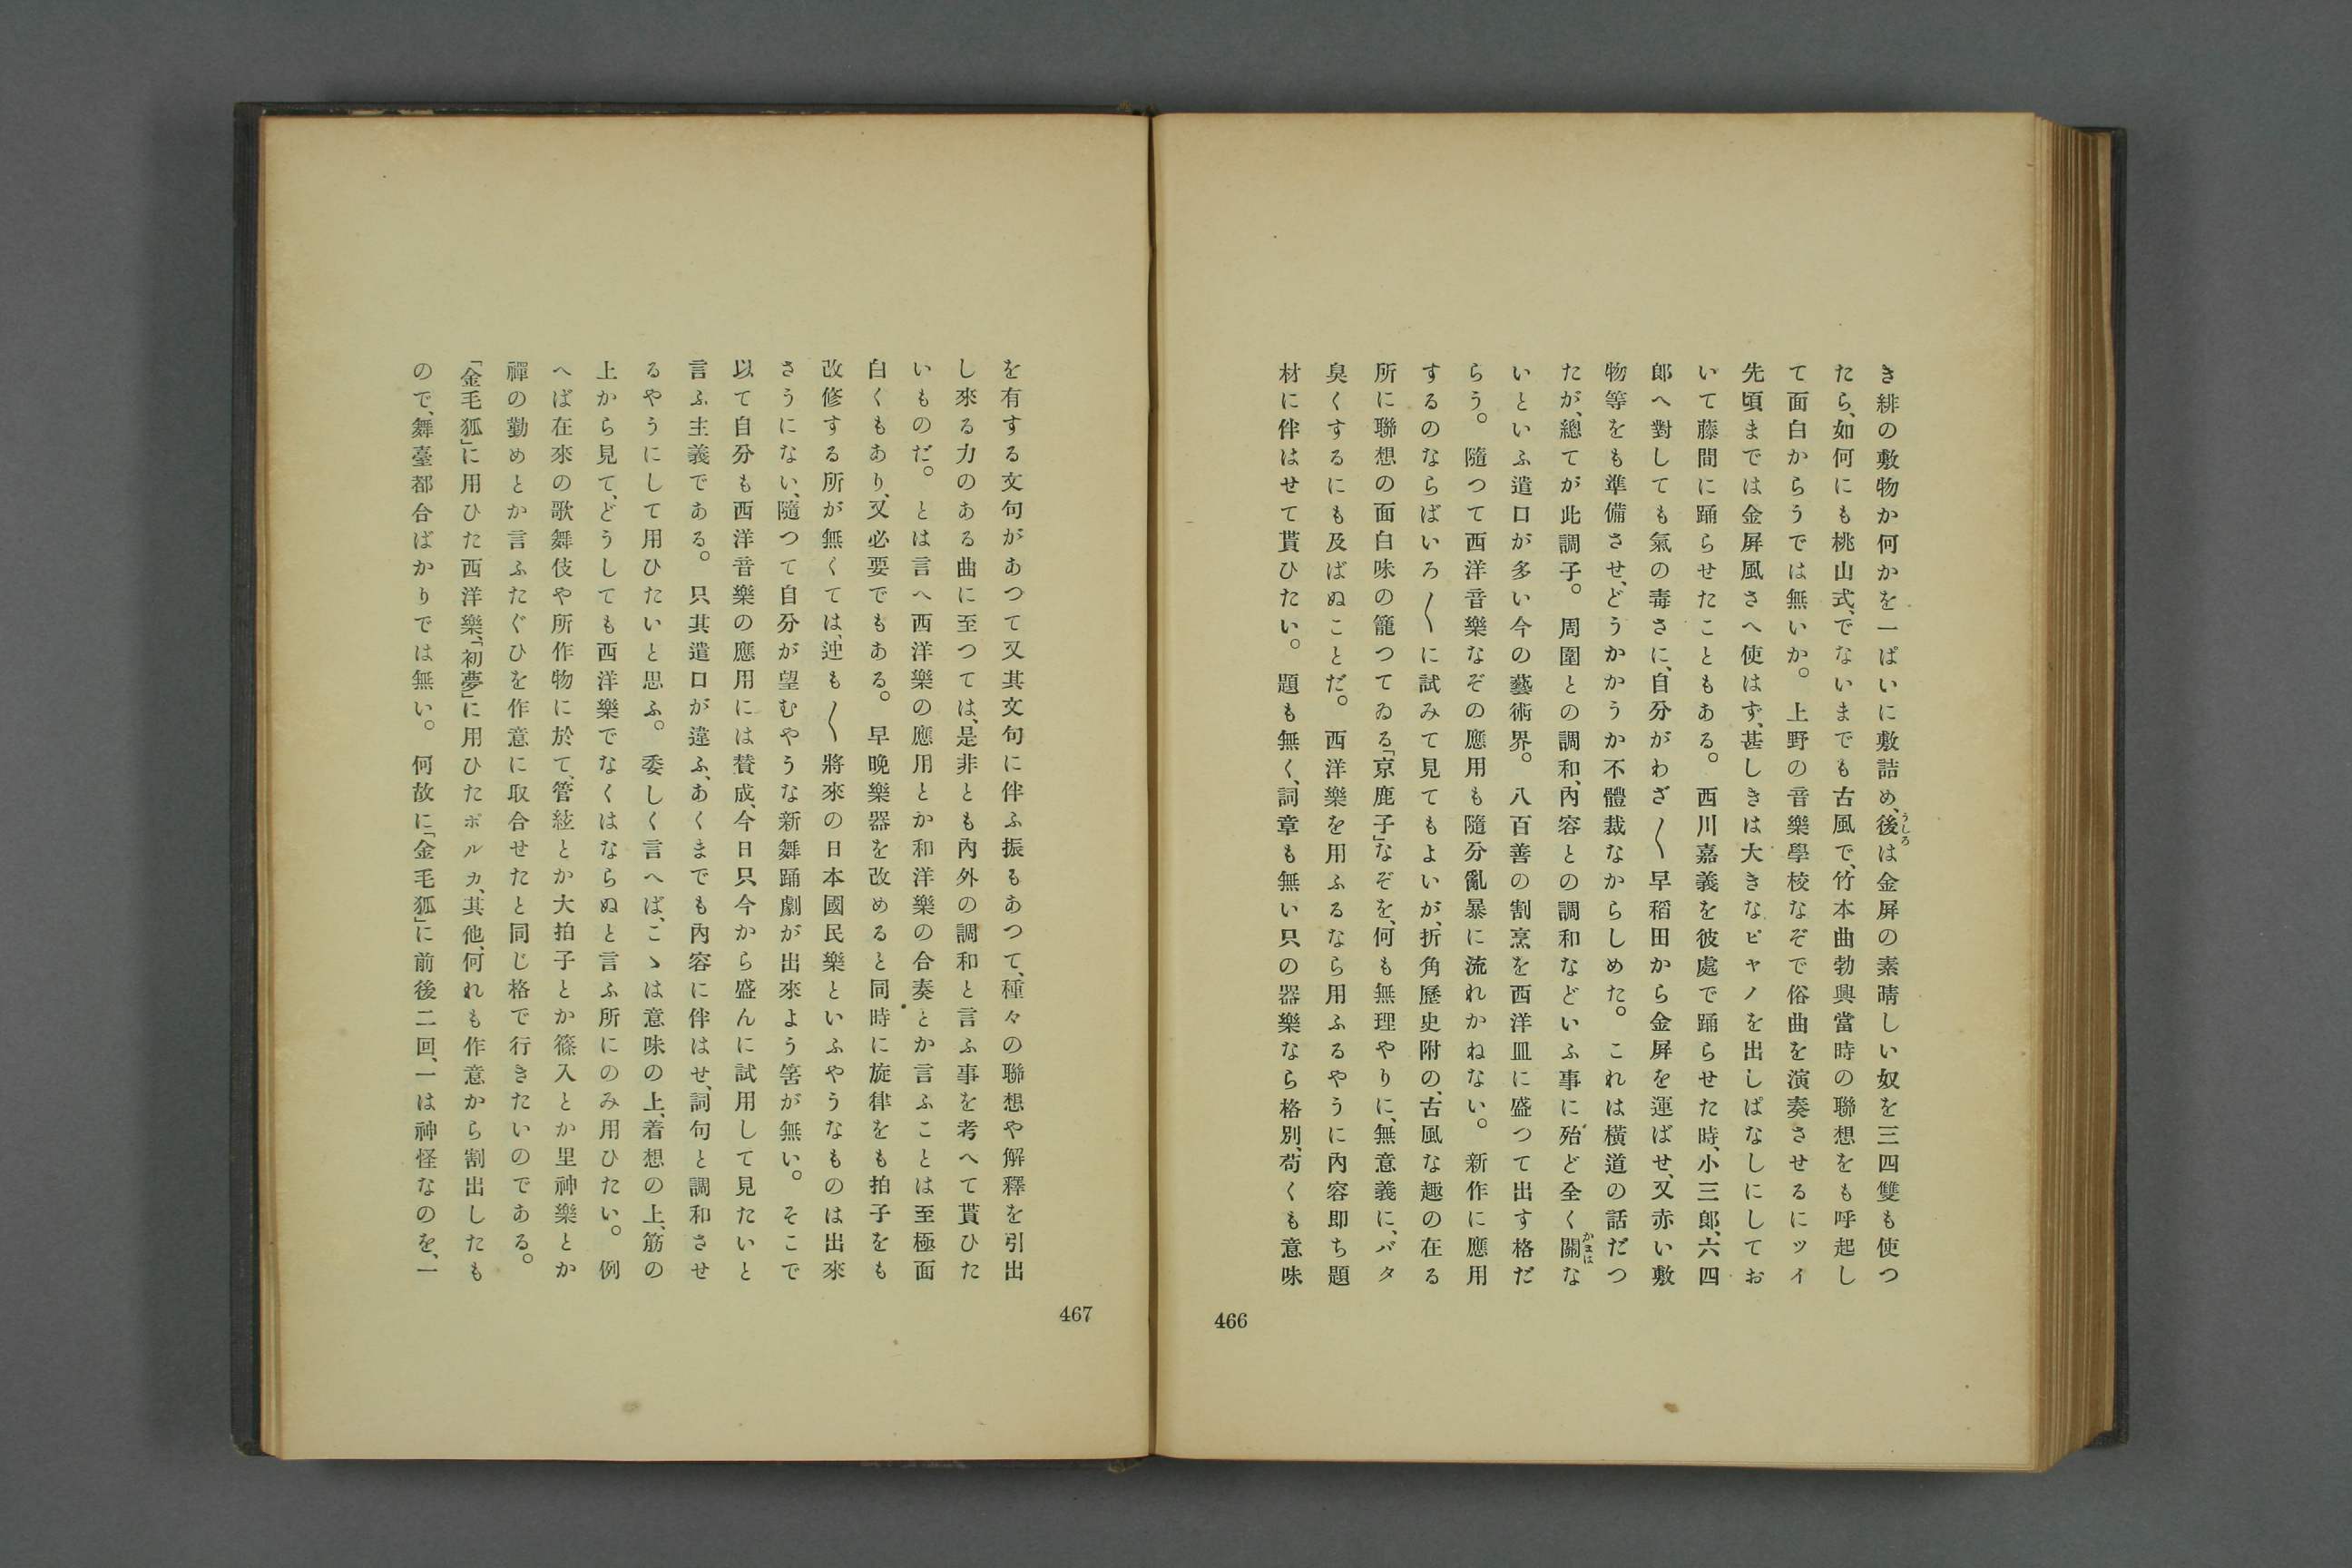 き緋の敷物か何かを一ぱいに敷詰め、後うしろは金屏の素晴しい奴を三四雙も使つ
たら、如何にも桃山式、でないまでも古風で、竹本曲勃興當時の聯想をも呼起し
て面白からうでは無いか。上野の音樂學校なぞで俗曲を演奏させるにツイ
先頃までは金屏風さへ使はず、甚しきは大きなピヤノを出しぱなしにしてお
いて藤間に踊らせたこともある。西川嘉義を彼處で踊らせた時、小三郎、六四
郎へ對しても氣の毒さに、自分がわざ〱早稻田から金屏を運ばせ、又赤い敷
物等をも準備させ、どうかかうか不體裁なからしめた。これは橫道の話だつ
たが、總てが此調子。周圍との調和、內容との調和などいふ事に殆ど全く關かまはな
いといふ遣口が多い今の藝術界。八百善の割烹を西洋皿に盛つて出す格だ
らう。隨つて西洋音樂なぞの應用も隨分亂暴に流れかねない。新作に應用
するのならばいろ〱に試みて見てもよいが、折角歷史附の、古風な趣の在る
所に聯想の面白味の籠つてゐる「京鹿子」なぞを、何も無理やりに、無意義に、バタ
臭くするにも及ばぬことだ。西洋樂を用ふるなら用ふるやうに內容卽ち題
材に伴はせて貰ひたい。題も無く、詞章も無い只の器樂なら格別、苟くも意味
466
を有する文句があつて又其文句に伴ふ振もあつて、種々の聯想や解釋を引出
し來る力のある曲に至つては、是非とも內外の調和と言ふ事を考へて貰ひた
いものだ。とは言へ西洋樂の應用とか和洋樂の合奏とか言ふことは至極面
白くもあり、又必要でもある。早晩樂器を改めると同時に旋律をも拍子をも
改修する所が無くては、迚も〱將來の日本國民樂といふやうなものは出來
さうにない、隨つて自分が望むやうな新舞踊劇が出來よう筈が無い。そこで
以て自分も西洋音樂の應用には賛成、今日只今から盛んに試用して見たいと
言ふ主義である。只其遣口が違ふ、あくまでも內容に伴はせ、詞句と調和させ
るやうにして用ひたいと思ふ。委しく言へば、こゝは意味の上、着想の上、筋の
上から見て、どうしても西洋樂でなくはならぬと言ふ所にのみ用ひたい。例
へば在來の歌舞伎や所作物に於て、管絃とか大拍子とか篠入とか里神樂とか
禪の勤めとか言ふたぐひを作意に取合せたと同じ格で行きたいのである。
「金毛狐」に用ひた西洋樂、「初夢」に用ひたポルカ、其他、何れも作意から割出したも
ので、舞臺都合ばかりでは無い。何故に「金毛狐」に前後二回、一は神怪なのを、一
467